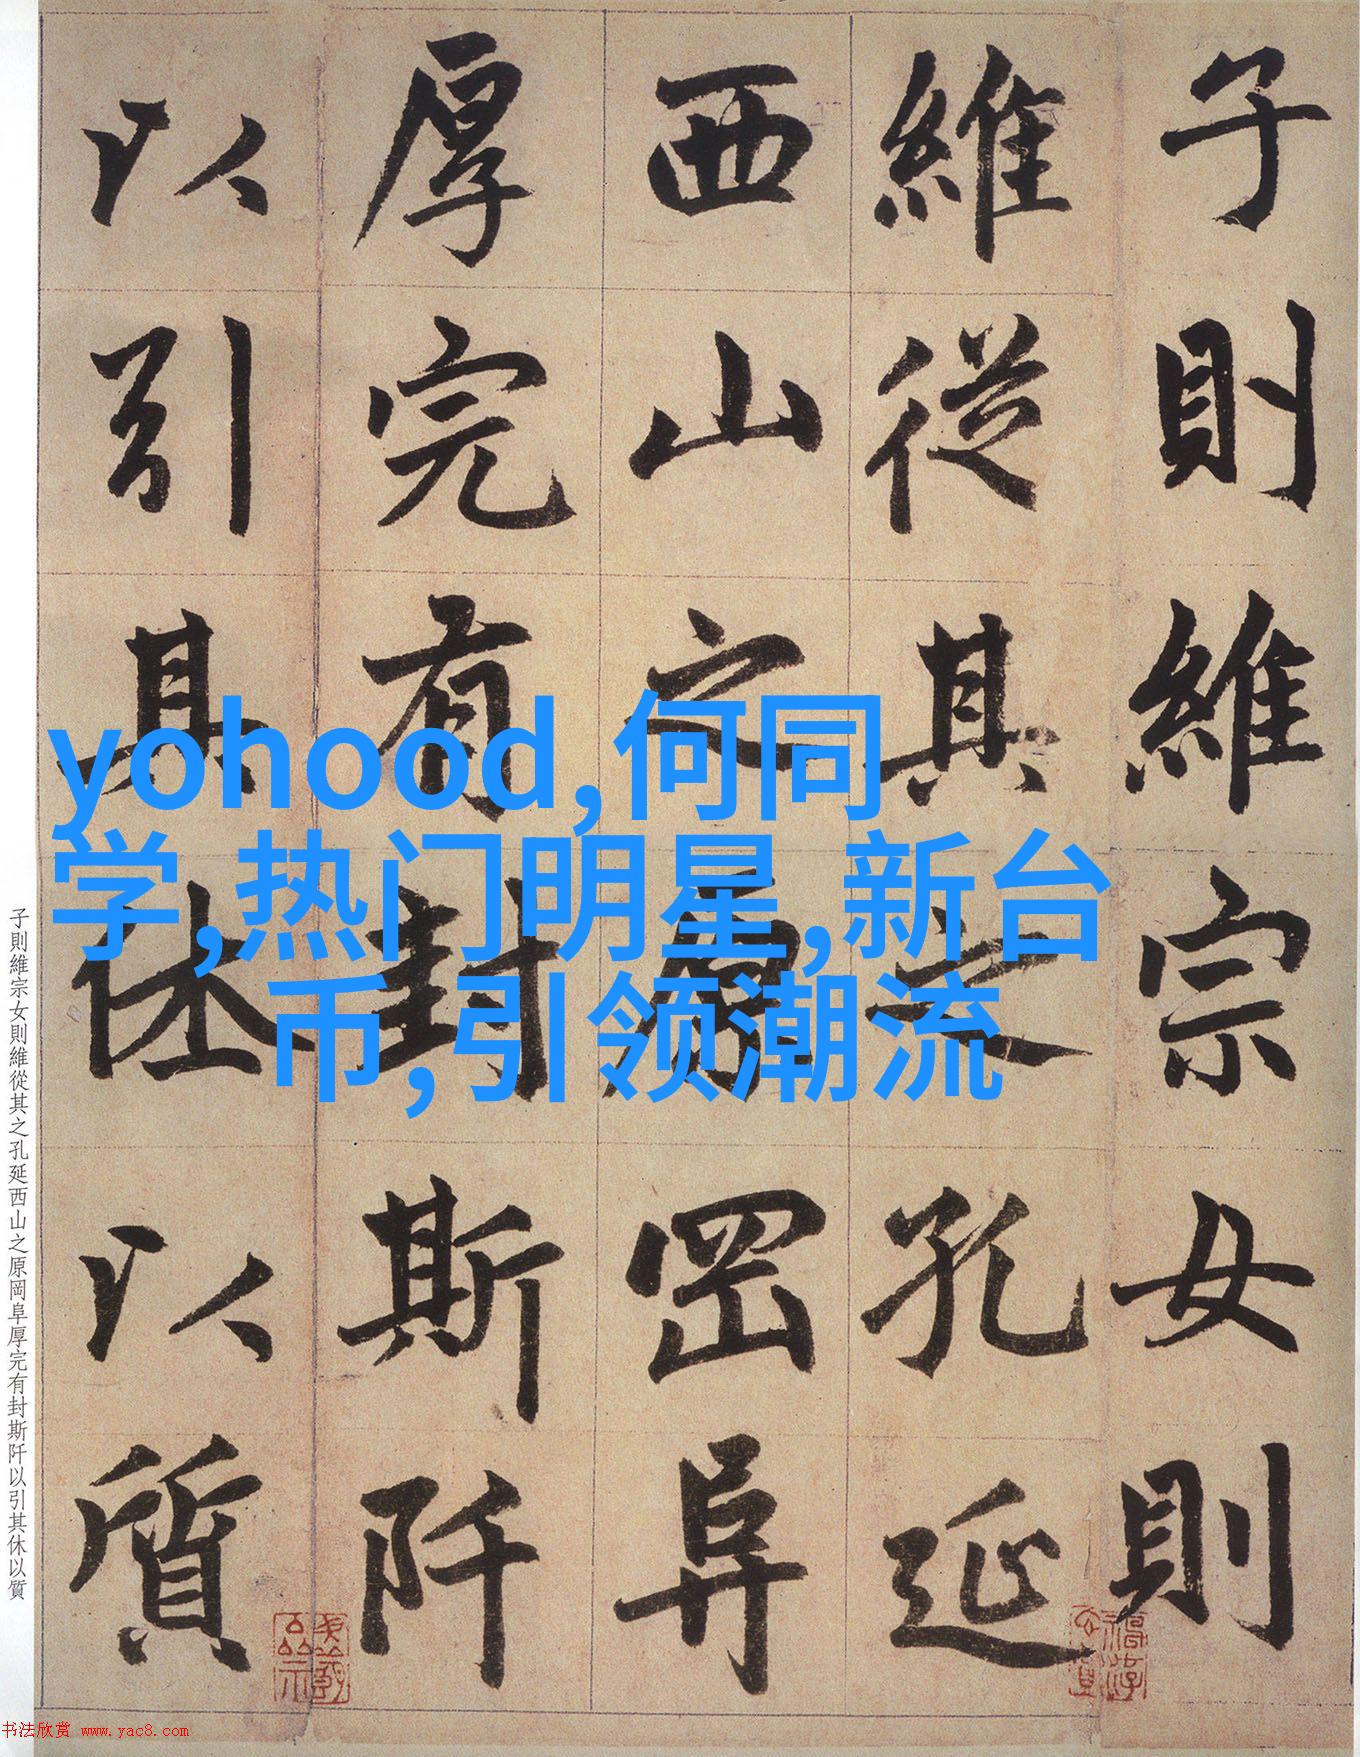 子則維宗女則
維從其之孔延
西山之原岡阜
厚完有封斯阡
以引其休以質
yohood,何同
学,热门明星,新台
币,引领潮流
子則維宗女則維從其之孔延西山之原岡阜厚完有封斯阡以引其休以質
书法欣赏 www.yac8.com